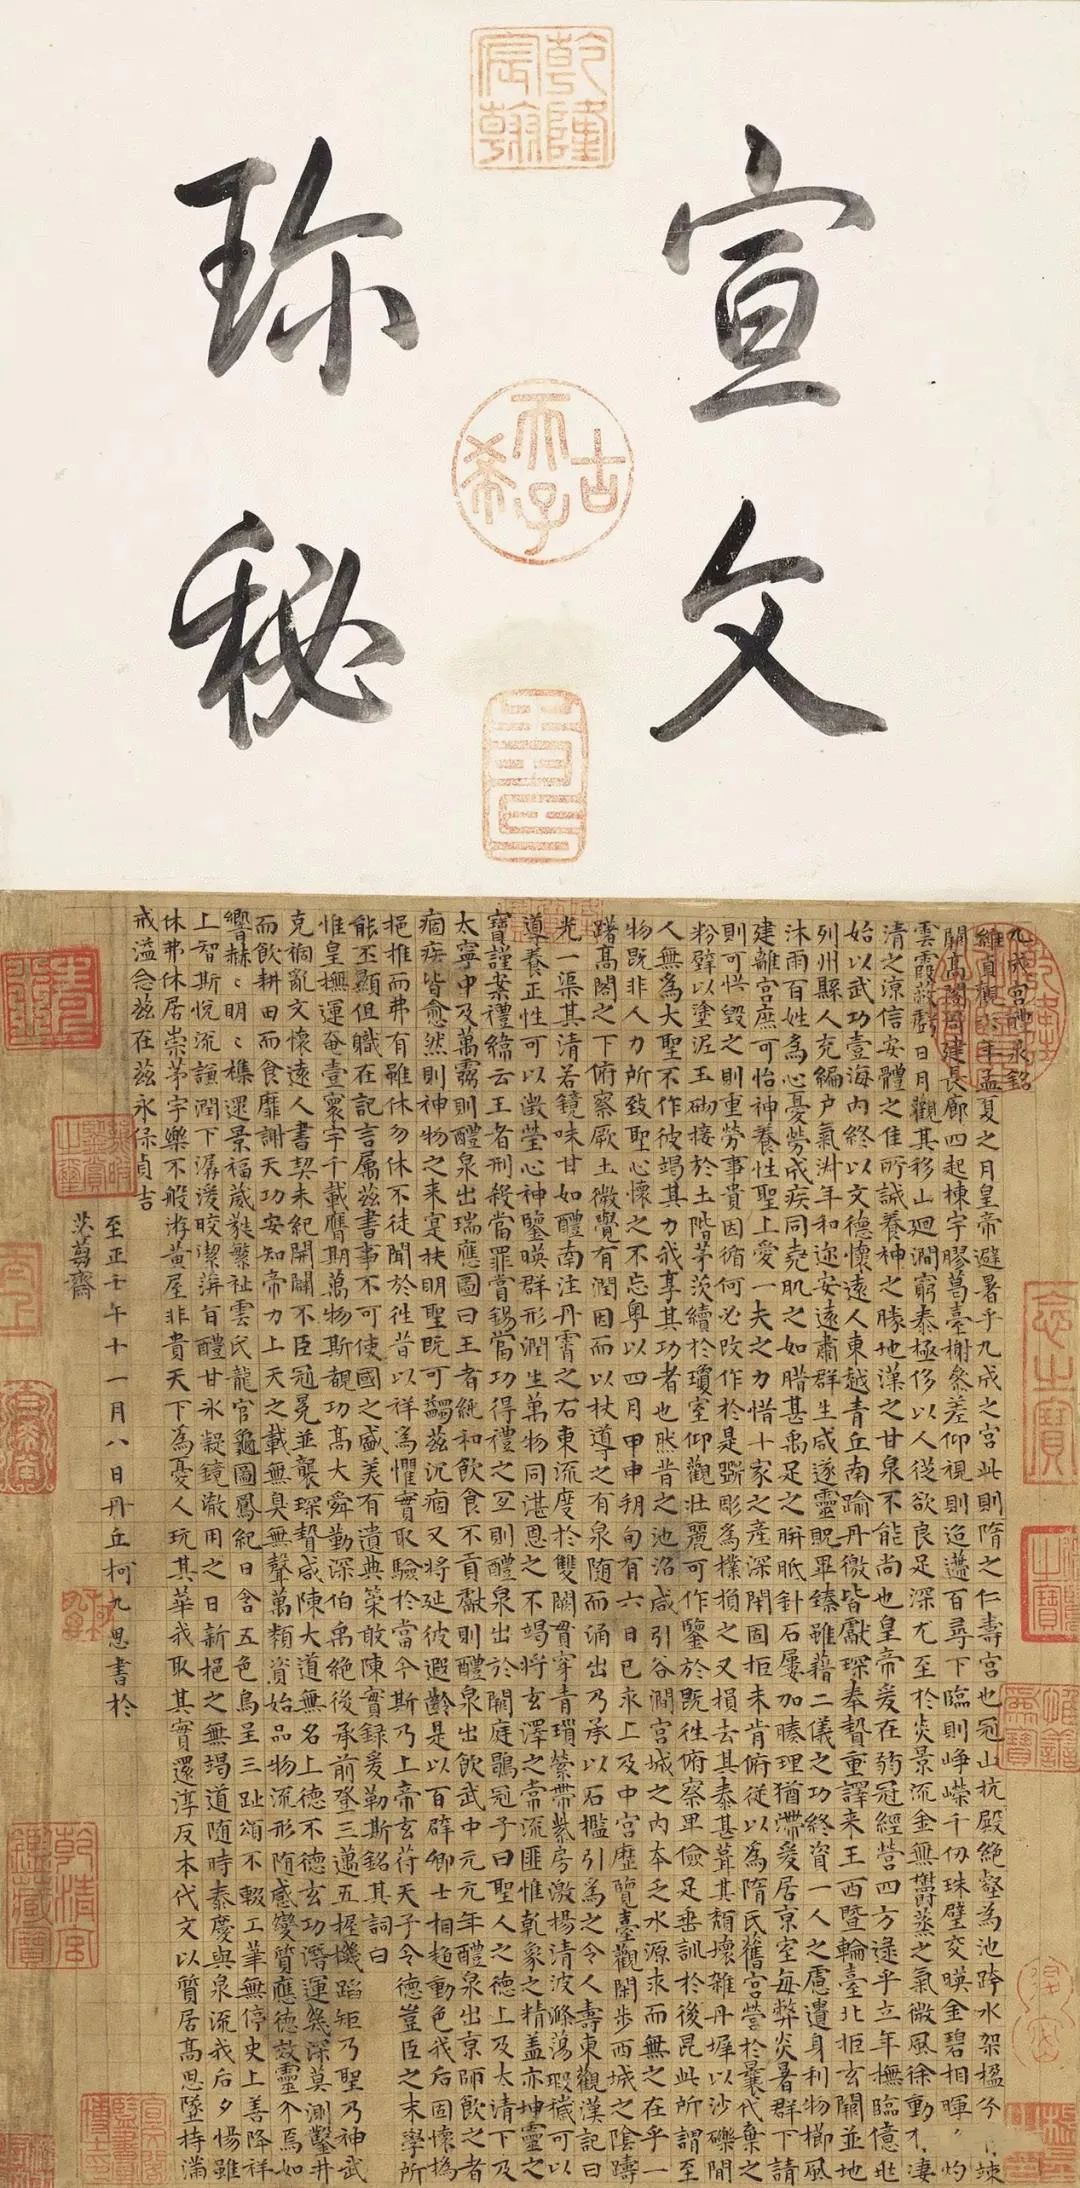 乾隆宸翰
宣文
珎秘
古希天子
九成宮醴泉銘
維貞觀六年孟夏之月皇帝避暑乎九成之宮此則隋之仁壽宮也冠山抗殿絕壑為池跨水架楹分竦
闕高閣周建長廊四起棟宇膠葛臺榭參差仰視則迢遰百尋下臨則崢嶸千仞珠璧交暎金碧相暉灼
雲霞蔽虧日月觀其移山迴澗窮泰極侈以人從欲良足深尤至於炎景流金無鬱蒸之氣微風徐動有凄
清之涼信安體之佳所誠養神之勝地漢之甘泉不能尚也皇帝爰在弱冠經營四方逮乎立年撫臨億兆
始以武功壹海內終以文德懷遠人東越青丘南踰丹徼皆獻琛奉贄重譯来王西暨輪臺北拒玄闕並地
列州縣人充編户氣淑年和迩安遠肅群生咸遂靈貺畢臻雖藉二儀之功終資一人之慮遺身利物櫛風
沐雨百姓為心憂勞成疾同堯肌之如腊甚禹足之胼胝針石屢加腠理猶滯爰居京室每弊炎暑群下請
建離宮庶可怡神養性聖上愛一夫之力惜十家之產深閉固拒未肯俯從以為隋氏舊宮營於曩代棄之
則可惜毀之則重勞事貴因循何必改作於是斲彫為樸損之又損去其泰甚葺其頹壞雜丹墀以沙礫間
粉壁以塗泥玉砌接於土階茅茨續於瓊室仰觀壯麗可作鑒於既往俯察卑儉足垂訓於後昆此所謂至
人無為大聖不作彼竭其力我享其功者也然昔之池沼咸引谷澗宮城之內本乏水源求而無之在乎一
物既非人力所致聖心懷之不忘粵以四月甲申朔旬有六日己亥上及中宮歷覽臺觀閑步西城之陰躊
躇高閣之下俯察厥土微覺有潤因而以杖導之有泉隨而涌出乃承以石檻引為之令人壽東觀漢記曰
光一渠其清若鏡味甘如醴南注丹霄之右東流度於雙闕貫穿青瑣縈帶紫房激揚清波滌蕩瑕穢可以
導養正性可以澂瑩心神鑒暎群形潤生萬物同湛恩之不竭將玄澤之常流匪惟乾象之精盖亦坤靈之
寶謹案禮緯云王者刑殺當罪賞錫當功得禮之宜則醴泉出於闕庭鶡冠子曰聖人之德上及太清下及
太寧中及萬靈則醴泉出瑞應圖曰王者純和飲食不貢獻則醴泉出飲武中元元年醴泉出京師飲之者
痼疾皆愈然則神物之来寔扶明聖既可蠲茲沉痼又將延彼遐齡是以百辟卿士相趨動色我后固懷撝
挹推而弗有雖休勿休不徒聞於往昔以祥為懼實取驗於當今斯乃上帝玄符天子令德豈臣之末學所
能丕顯但職在記言属茲書事不可使國之盛美有遺典策敢陳實録爰勒斯銘其詞曰
惟皇撫運奄壹寰宇千載膺期萬物斯覩功高大舜勤深伯禹絕後承前登三邁五握機蹈矩乃聖乃神武
克禍亂文懷遠人書契未紀開闢不臣冠冕並襲琛贄咸陳大道無名上德不德玄功潛運幾深莫測鑿井
而飲耕田而食靡謝天功安知帝力上天之載無臭無聲萬類資始品物流形隨感變質應德效靈介焉如
響赫〻明〻雜遝景福葳蕤繁祉雲氏龍官龜圖鳳紀日含五色烏呈三趾頌不輟工筆無停史上善降祥
上智斯悅流謙潤下潺湲皎潔蓱旨醴甘冰凝鏡澈用之日新挹之無竭道随時泰慶與泉流我后夕惕雖
休弗休居崇茅宇樂不般游黃屋非貴天下為憂人玩其華我取其實還淳反本代文以質居髙思墜持滿
戒溢念茲在茲永保貞吉
至正壬午十一月八日丹丘柯九思書於
乾清宮鑒藏寶